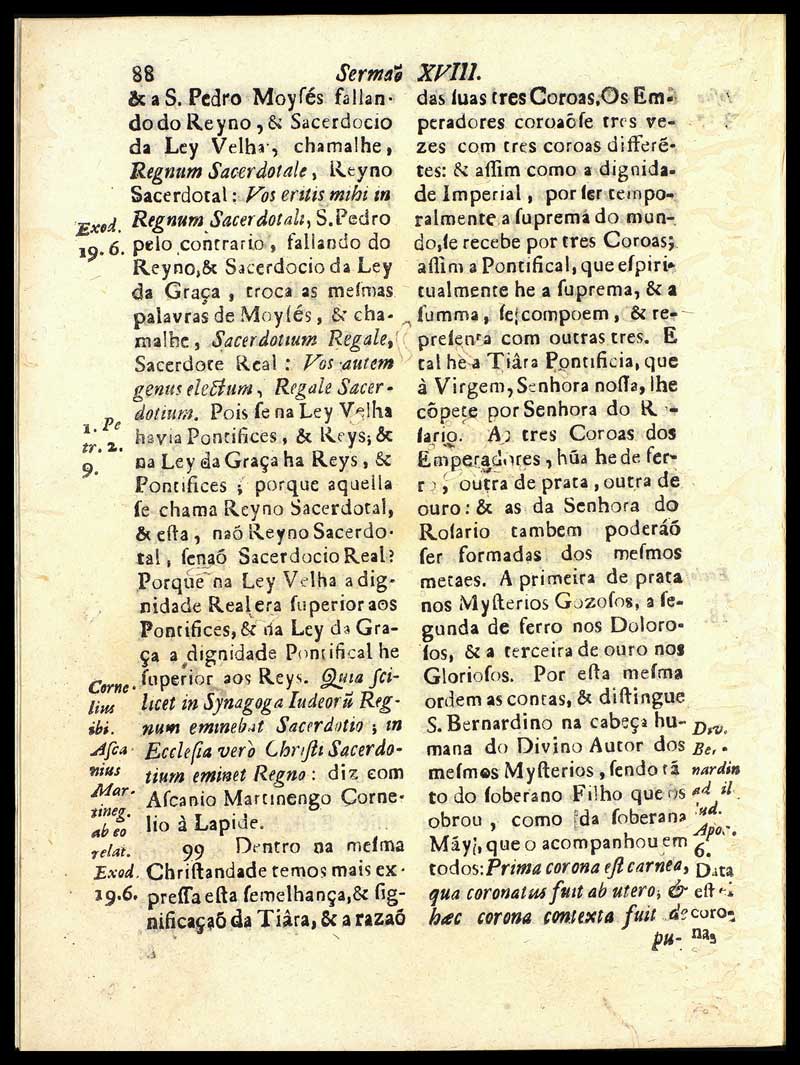 88 Sermaõ XVIII.
& a S. Pedro Moyſés fallan-
do do Reyno, & Sacerdocio
da Ley Velha, chamalhe,
Regnum Sacerdotale, Reyno
Sacerdotal: Vos eritis mihi in
Regnum Sacerdotali, S. Pedro
pelo contrario, fallando do
Reyno, & Sacerdocio da Ley
da Graça, troca as meſmas
palavras de Moyſés, & cha-
malhe, Sacerdotium Regale,
Sacerdote Real: Vos autem
genus electum, Regale Sacer-
dotium. Pois ſe na Ley Velha
havia Pontifices, & Reys; &
na Ley da Graça ha Reys, &
Pontifices; porque aquella
ſe chama Reyno Sacerdotal,
& eſta, naõ Reyno Sacerdo-
tal, ſenaõ Sacerdocio Real?
Porque na Ley Velha a dig-
nidade Real era ſuperior aos
Pontifices, & na Ley da Gra-
ça a dignidade Pontifical he
ſuperior aos Reys. Quia ſci-
licet in Synagoga Iudeorũ Reg-
num eminebat Sacerdotio; in
Eccleſia verò Chriſti Sacerdo-
tium eminet Regno: diz com
Aſcanio Martinengo Corne-
lio à Lapide.
99 Dentro na meſma
Chriſtandade temos mais ex-
preſſa eſta ſemelhança, & ſig-
nificaçaõ da Tiâra, & a razaõ
Exod.
19. 6.
1. Pe
tr. 2.
9.
Corne-
lius
ibi.
Aſca
nius
Mar-
tineg.
ab eo
relat.
Exod.
19. 6.
das ſuas tres Coroas. Os Em-
peradores coroaõſe tres ve-
zes com tres coroas differẽ-
tes: & aſſim como a dignida-
de Imperial, por ſer tempo-
ralmente a ſuprema do mun-
do, ſe recebe por tres Coroas;
aſſim a Pontifical, que eſpiri-
tualmente he a ſuprema, & a
ſumma, ſe compoem, & re-
preſenta com outras tres. E
tal he a Tiâra Pontificia, que
à Virgem, Senhora noſſa, lhe
cõpete por Senhora do R -
ſario. As tres Coroas dos
Emperadores, hũa he de fer-
ro, outra de prata, outra de
ouro: & as da Senhora do
Roſario tambem poderáõ
ſer formadas dos meſmos
metaes. A primeira de prata
nos Myſterios Gozoſos, a ſe-
gunda de ferro nos Doloro-
ſos, & a terceira de ouro nos
Glorioſos. Por eſta meſma
ordem as contas, & diſtingue
S. Bernardino na cabeça hu-
mana do Divino Autor dos
meſmos Myſterios, ſendo tã
to do ſoberano Filho que os
obrou, como da ſoberana
Mãy, que o acompanhou em
todos: Prima corona eſt carnea,
qua coronatus fuit ab utero; &
hæc corona contexta fuit de
pu-
Div.
Ber-
nardin
ad il
lud.
Apoc.
6.
Data
eſt ei
coro-
na,